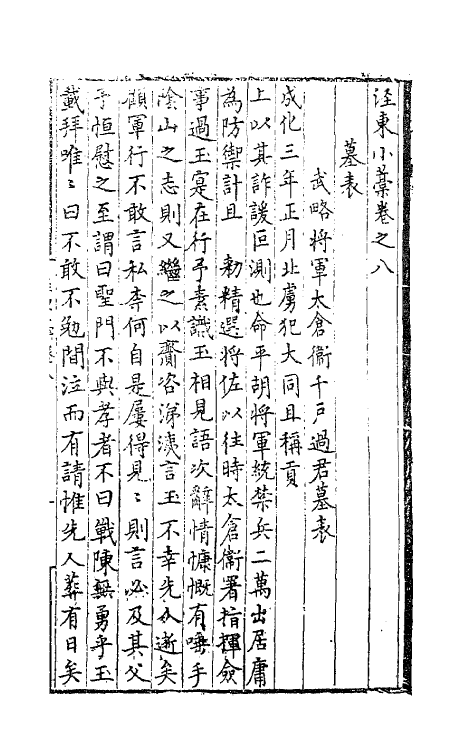 涇東小藁卷之八
墓表
武略將軍太倉衞千戶過君墓表
成化三年正月北虜犯大同且稱貢
上以其詐諼叵測也命平胡將軍統禁兵二萬出居庸
為防禦計且 勑精選將佐以往時太倉衞署指揮僉
事過玉寔在行予素識玉相見語次辭情慷慨有唾手
陰山之志則又繼之以齎咨涕洟言玉不幸先人逝矣
顧軍行不敢言私柰何自是屢得見〻則言必及其父
予恒慰之至謂曰聖門不與孝者不曰戰陳無勇乎玉
載拜唯〻曰不敢不勉間泣而有請惟先人葬有日矣